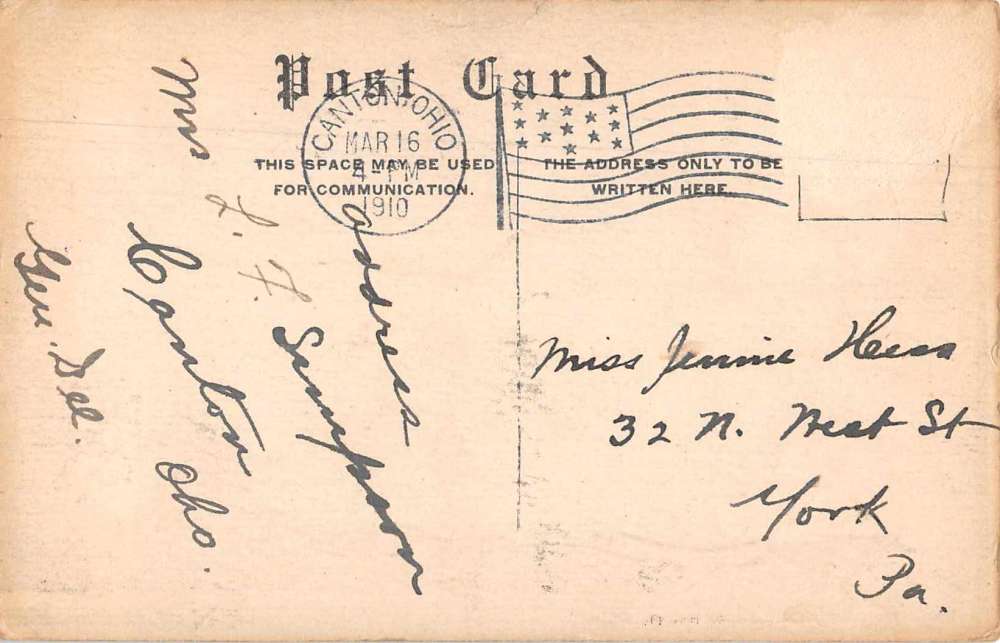 Post Card
CANTON, OHIO
MAR 16
4-PM
1910
THIS SPACE MAY BE USED
FOR COMMUNICATION.
THE ADDRESS ONLY TO BE
WRITTEN HERE.
Address
L. F. Sampson
Canton Oho.
Gen. Del.
Miss Jennie Hess
32 N. West St
York
Pa.